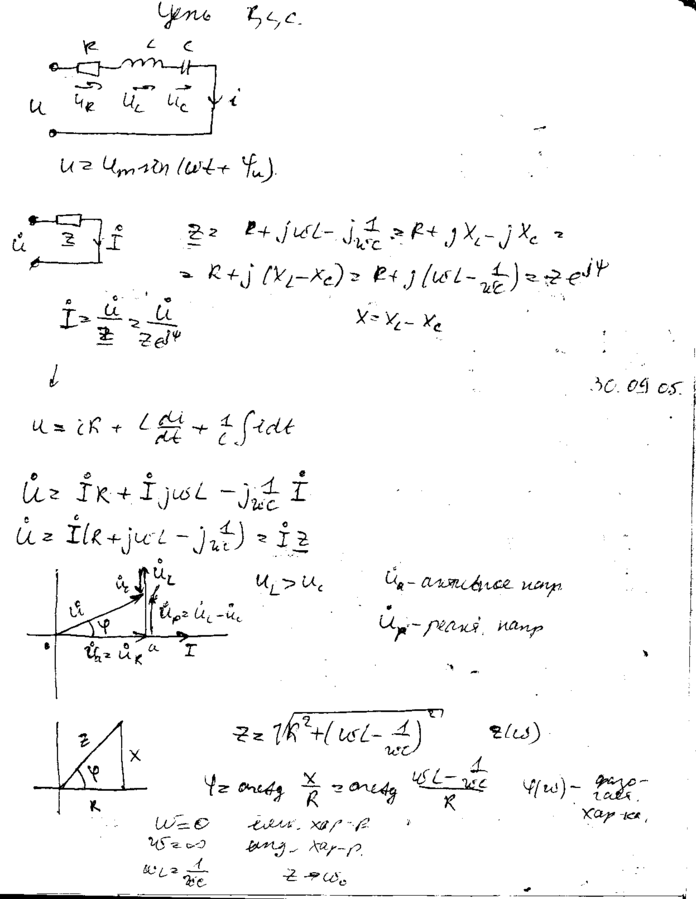 Цепь R, L, C.
R L C
u u_R u_L u_C i
u = U_m sin(ωt + φ_u).
Z = R + jωL - j 1/ωC = R + jX_L - jX_C =
U̇ Z İ
= R + j(X_L - X_C) = R + j(ωL - 1/ωC) = z e^{jφ}
İ = U̇/Z = U̇/(z e^{jφ})
X = X_L - X_C
30.09 05.
u = iR + L di/dt + 1/C ∫ i dt
U̇ = İR + İjωL - j 1/ωC İ
U̇ = İ(R + jωL - j 1/ωC) = İZ
U̇_c U̇_L
U_L > U_c
U̇_a - активное напр.
U̇ φ U̇_p = U̇_L - U̇_c
U̇_p - реакт. напр
0 U̇_a = U̇_R a I
z = √(R² + (ωL - 1/ωC)²) z(ω)
z X φ R
φ = arctg X/R = arctg (ωL - 1/ωC)/R φ(ω) - фазо-
хар-ка.
ω = 0 емк. хар-р.
ω = ∞ инд. хар-р.
ωL = 1/ωC z → ω₀